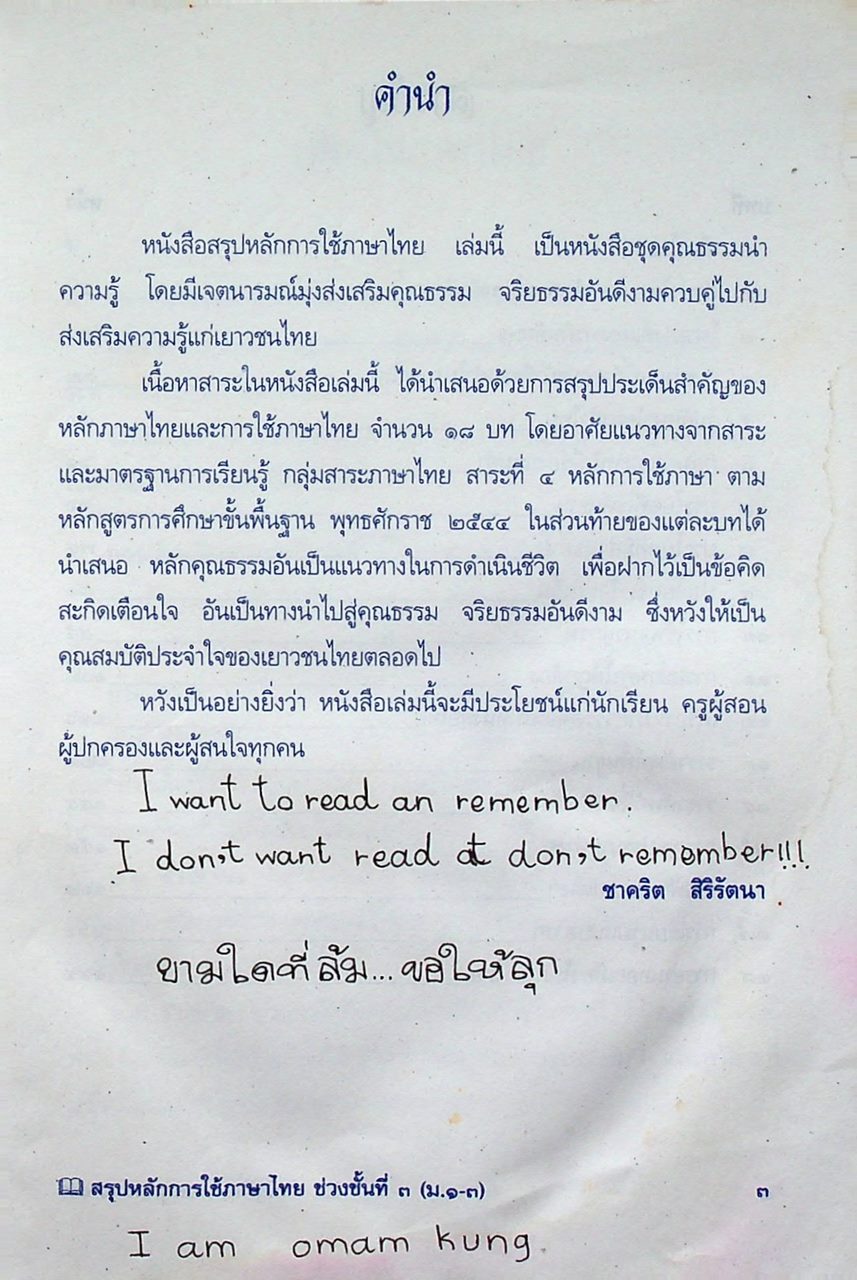 คำนำ
หนังสือสรุปหลักการใช้ภาษาไทย เล่มนี้ เป็นหนังสือชุดคุณธรรมนำ
ความรู้ โดยมีเจตนารมณ์มุ่งส่งเสริมคุณธรรม จริยธรรมอันดีงามควบคู่ไปกับ
ส่งเสริมความรู้แก่เยาวชนไทย
เนื้อหาสาระในหนังสือเล่มนี้ ได้นำเสนอด้วยการสรุปประเด็นสำคัญของ
หลักภาษาไทยและการใช้ภาษาไทย จำนวน ๑๘ บท โดยอาศัยแนวทางจากสาระ
และมาตรฐานการเรียนรู้ กลุ่มสาระภาษาไทย สาระที่ ๔ หลักการใช้ภาษา ตาม
หลักสูตรการศึกษาขั้นพื้นฐาน พุทธศักราช ๒๕๔๔ ในส่วนท้ายของแต่ละบทได้
นำเสนอ หลักคุณธรรมอันเป็นแนวทางในการดำเนินชีวิต เพื่อฝากไว้เป็นข้อคิด
สะกิดเตือนใจ อันเป็นทางนำไปสู่คุณธรรม จริยธรรมอันดีงาม ซึ่งหวังให้เป็น
คุณสมบัติประจำใจของเยาวชนไทยตลอดไป
หวังเป็นอย่างยิ่งว่า หนังสือเล่มนี้จะมีประโยชน์แก่นักเรียน ครูผู้สอน
ผู้ปกครองและผู้สนใจทุกคน
I want to read an remember.
I don,t want read don,t remember!!!
ชาคริต สิริรัตนา
ยามใดที่ล้ม...ขอให้ลุก
สรุปหลักการใช้ภาษาไทย ช่วงชั้นที่ ๓ (ม.๑-๓) ๓
I am omam kung